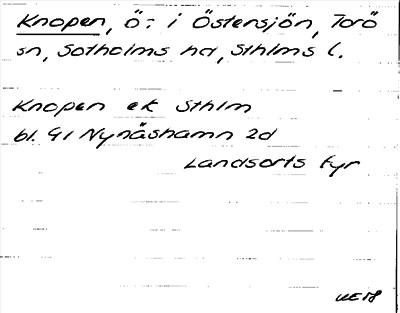 Knopen, ö: i Östensjön, Torö
sn, Sotholms hd, Sthlms l.
Knopen ek Sthlm
bl. 91 Nynäshamn 2d
Landsorts fyr